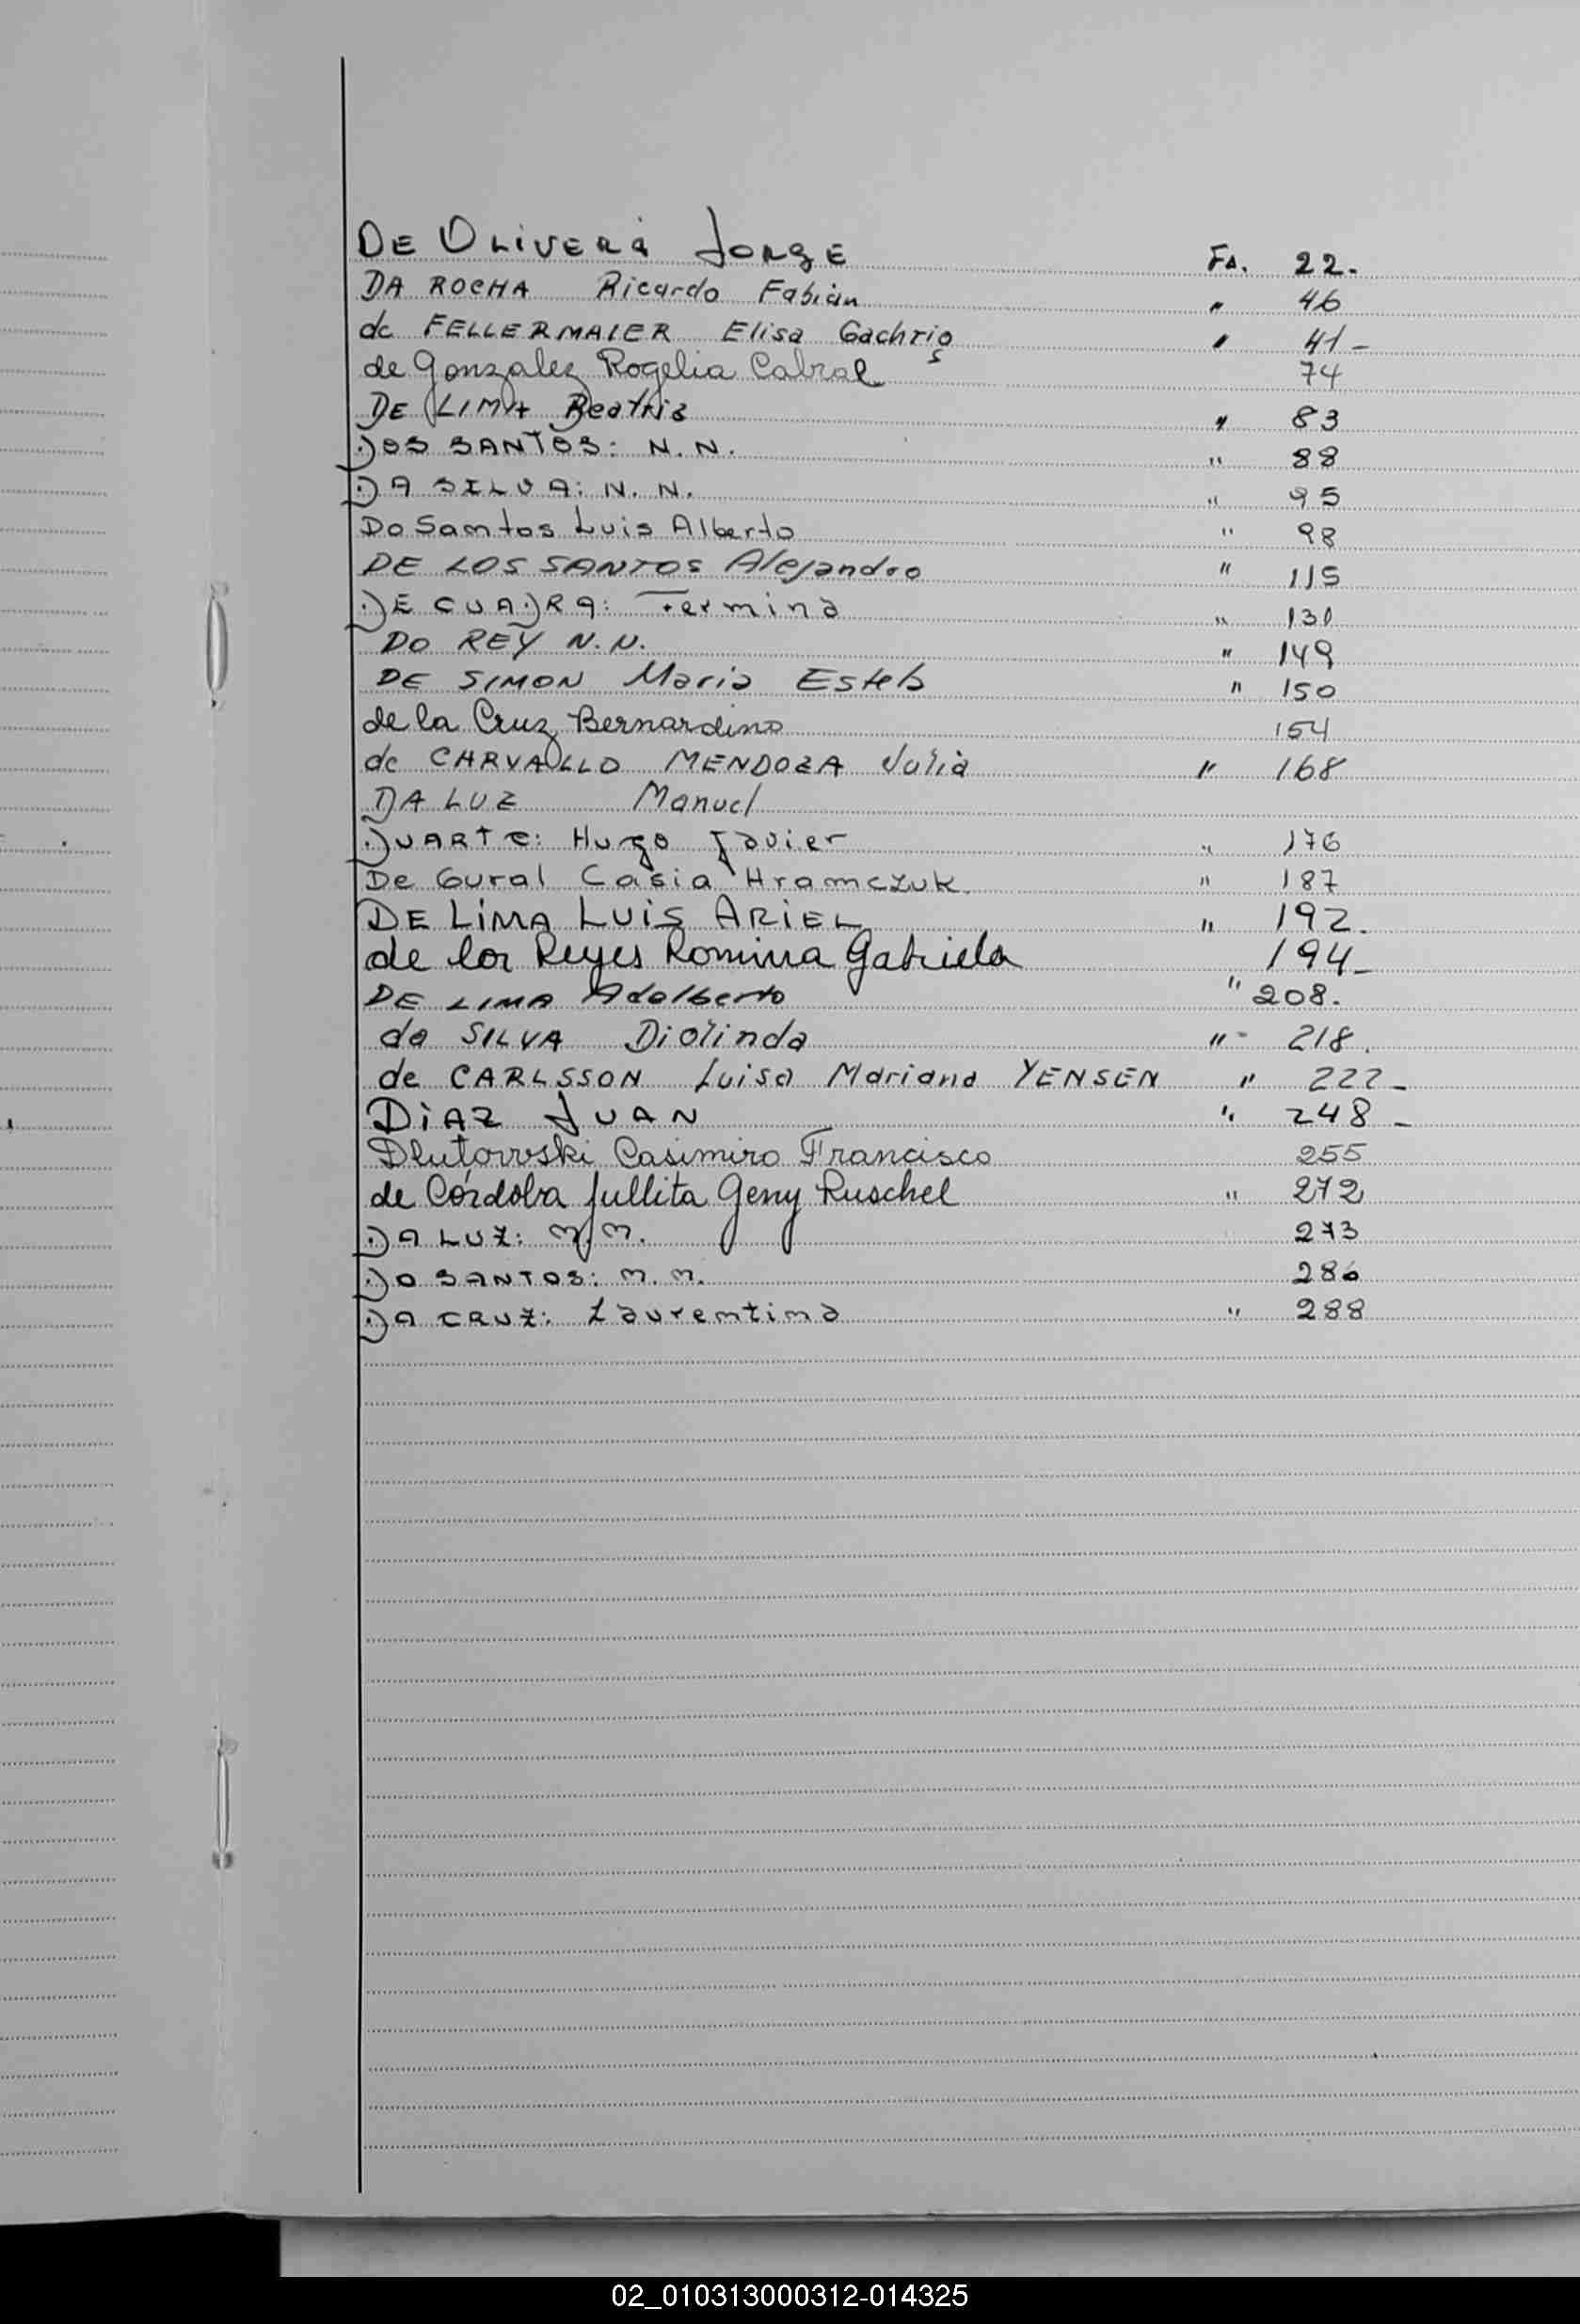 DE OLIVERA JORGE Fs. 22.-
DA ROCHA Ricardo Fabián " 46
de FELLERMAIER Elisa " 41-
de Gonzalez Rogelia Cabral 74
DE LIMA Beatris " 83
DOS SANTOS: N.N. " 88
DA SILVA: N.N. " 95
Do Santos Luis Alberto " 98
DE LOS SANTOS Alejandro " 115
DE CUADRA: Fermina " 130
DO REY N.N. " 149
DE SIMON Maria Estela " 150
de la Cruz Bernardino 154
de CARVALLO MENDOZA Julia " 168
DA LUZ Manuel
DUARTE: Hugo Javier " 176
De Gural Casia Hramczuk. " 187
DE LIMA LUIS ARIEL " 192.
de los Reyes Romina Gabriela 194-
DE LIMA Adalberto " 208.
da SILVA Diolinda "- 218.
de CARLSSON Luisa Mariana YENSEN " 222-
DIAZ JUAN " 248-
Dlutowski Casimiro Francisco 255
de Córdoba Jullita Geny Ruschel " 272
DA LUZ: M.M. 273
DO SANTOS: M.M. 286
DA CRUZ: Laurentina " 288
02_010313000312-014325